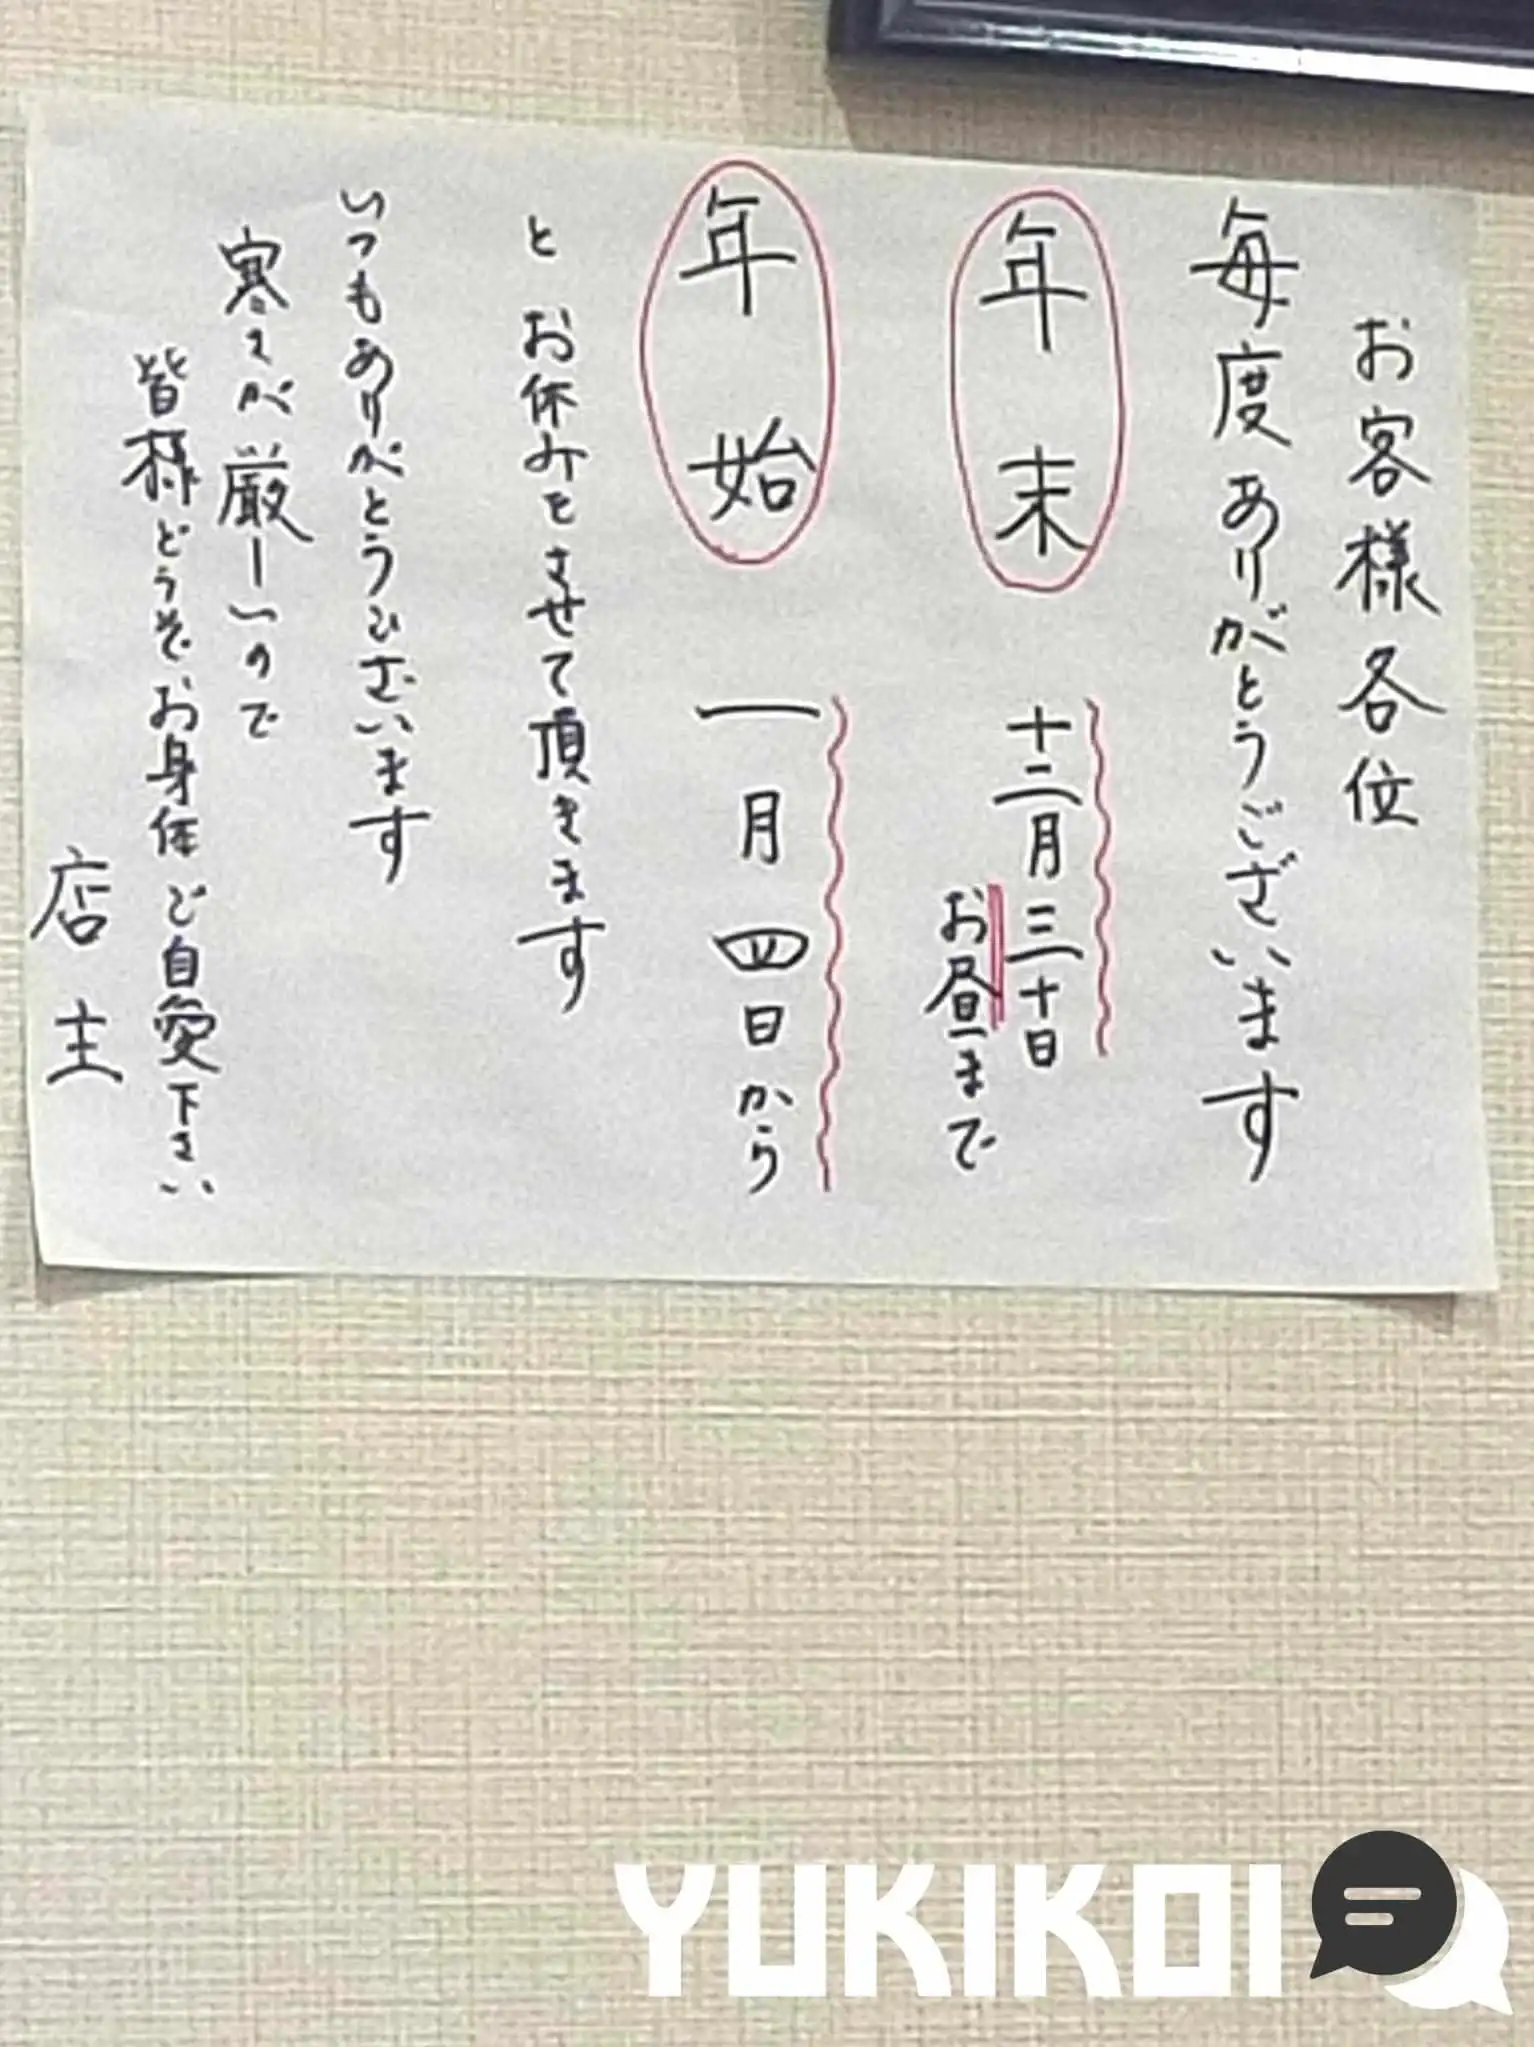 お客様各位
毎度ありがとうございます
年末 十二月三十日
お昼まで
年始 一月四日から
とお休みをさせて頂きます
いつもありがとうございます
寒さが厳しいので
皆様どうぞお身体ご自愛下さい
店主
YUKIKOI